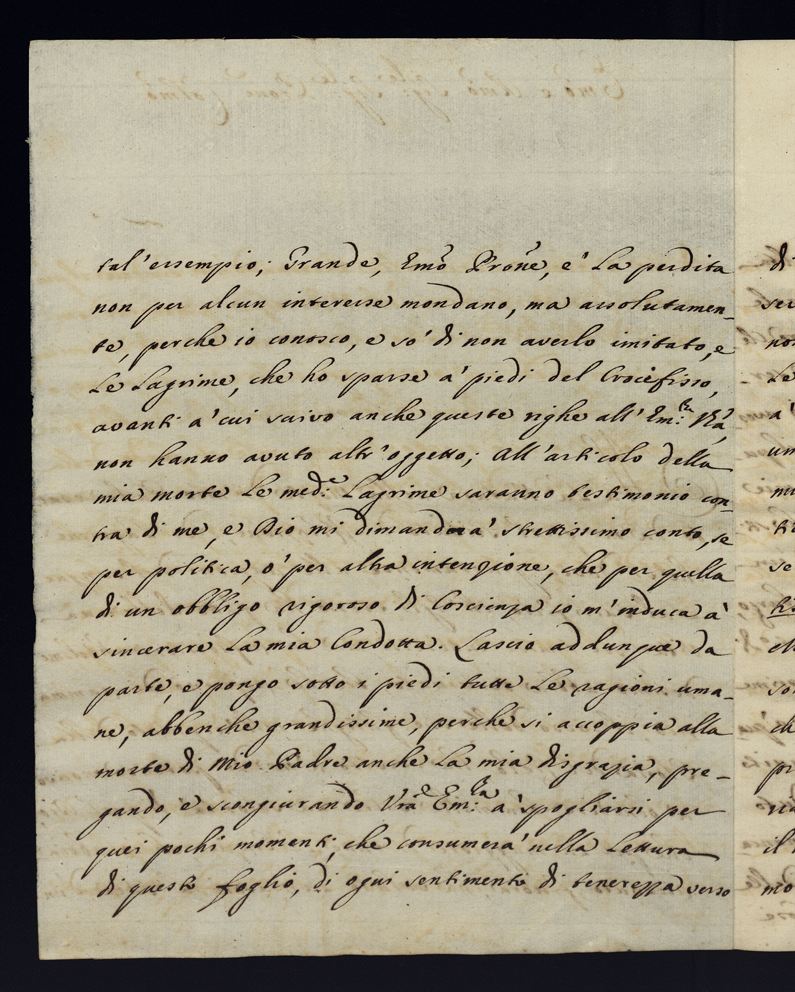 tal' essempio; Grande, Emõ Prone, e' La perdita
non per alcun interesse mondano, ma assolutamen_
te, perche io conosco, e so' di non averlo imitato, e
Le Lagrime, che ho sparse a' piedi del Crocefisso,
avanti a' cui scrivo anche queste righe all' Em:za Vrã,
non hanno avuto altr' oggetto; All' articolo della
mia morte Le med:e Lagrime saranno testimonio con_
tra di me, e Dio mi dimanderà strettissimo conto, se
per politica, o' per altra intenzione, che per quella
di un obbligo rigoroso di Coscienza io m' induca a'
sincerare La mia Condotta. Lascio addunque da
parte, e pongo sotto i piedi tutte Le ragioni uma_
ne, abbenche grandissime, perche si accoppia alla
morte di Mio Padre anche La mia disgrazia, pre_
gando, e scongiurando Vrã Em:za a' spogliarsi per
quei pochi momenti, che consumera' nella Lettura
di questo foglio, di ogni sentimento di tenerezza verso